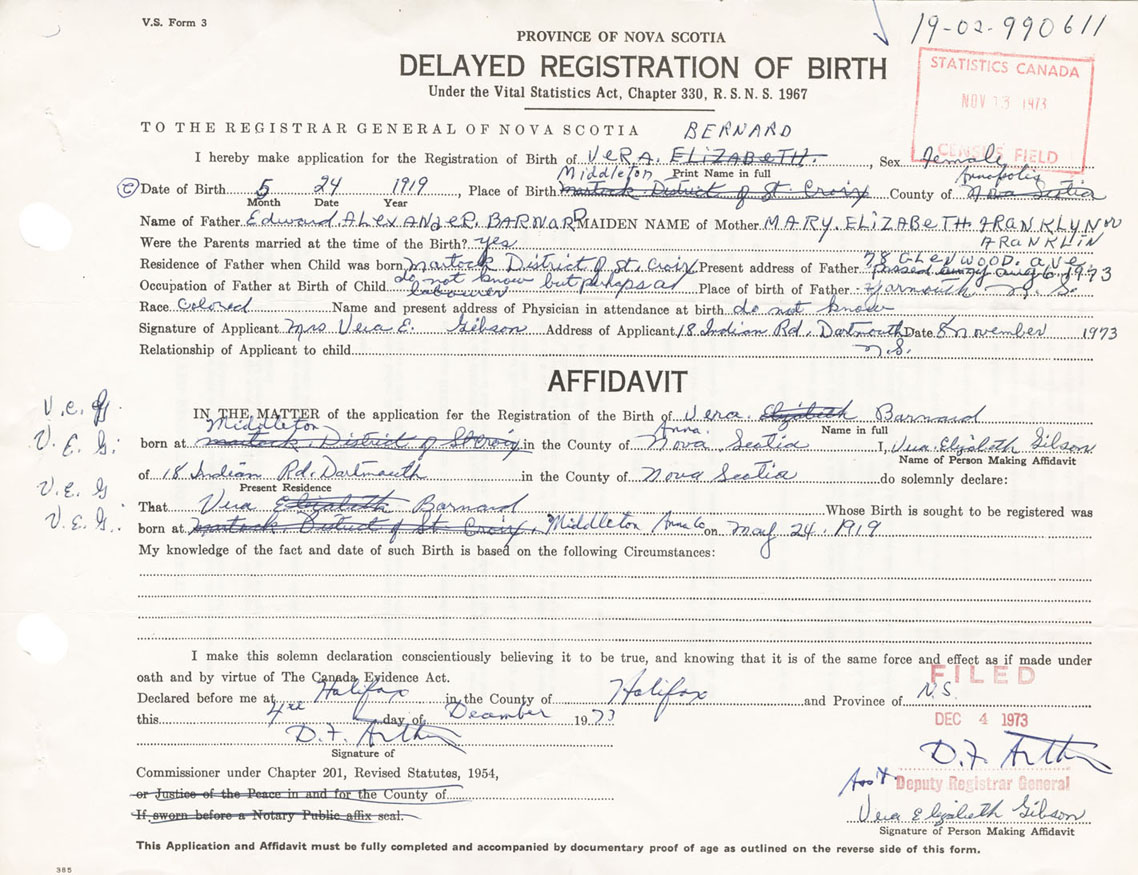 V.S. Form 3
19-02-990611
PROVINCE OF NOVA SCOTIA
DELAYED REGISTRATION OF BIRTH
Under the Vital Statistics Act, Chapter 330, R. S. N. S. 1967
STATISTICS CANADA
NOV 13 1973
CENSUS FIELD
TO THE REGISTRAR GENERAL OF NOVA SCOTIA BERNARD
I hereby make application for the Registration of Birth of VERA. ELIZABETH. , Sex female
Middleton Print Name in full Annapolis
Date of Birth 5 24 1919 , Place of Birth Martock. District of St. Croix County of Nova Scotia
Month Date Year
Name of Father Edward ALEXANDER. BARNARD MAIDEN NAME of Mother MARY. ELIZABETH FRANKLYNN
Were the Parents married at the time of the Birth? yes FRANKLIN
78 GLENWOOD. AVE
Residence of Father when Child was born Martock District of St. Croix Present address of Father passed away aug 6, 1973
Occupation of Father at Birth of Child do not know but perhaps a labourer Place of birth of Father Yarmouth N. S.
Race Colored Name and present address of Physician in attendance at birth do not know
Signature of Applicant Mrs Vera E. Gibson Address of Applicant 18 Indian Rd. Dartmouth Date 8 November 1973
N.S.
Relationship of Applicant to child
AFFIDAVIT
V.E.G.
IN THE MATTER of the application for the Registration of the Birth of Vera. Elizabeth Barnard
Middleton Anna. Name in full
V.E.G.
born at Martock. District of St Croix in the County of Nova Scotia I, Vera Elizabeth Gibson
Name of Person Making Affidavit
of 18 Indian Rd. Dartmouth in the County of Nova Scotia do solemnly declare:
Present Residence
V.E.G
That Vera Elizabeth Barnard Whose Birth is sought to be registered was
V.E.G.
born at Martock District of St Croix, Middleton Anna Co on May 24. 1919
My knowledge of the fact and date of such Birth is based on the following Circumstances:
I make this solemn declaration conscientiously believing it to be true, and knowing that it is of the same force and effect as if made under
oath and by virtue of The Canada Evidence Act.
FILED
Declared before me at Halifax in the County of Halifax and Province of N.S.
this 4th day of December 1973
DEC 4 1973
D.F. Arthur
Signature of
D.F. Arthur
Commissioner under Chapter 201, Revised Statutes, 1954,
Ass't Deputy Registrar General
or Justice of the Peace in and for the County of
If sworn before a Notary Public affix seal.
Vera Elizabeth Gibson
Signature of Person Making Affidavit
This Application and Affidavit must be fully completed and accompanied by documentary proof of age as outlined on the reverse side of this form.
385